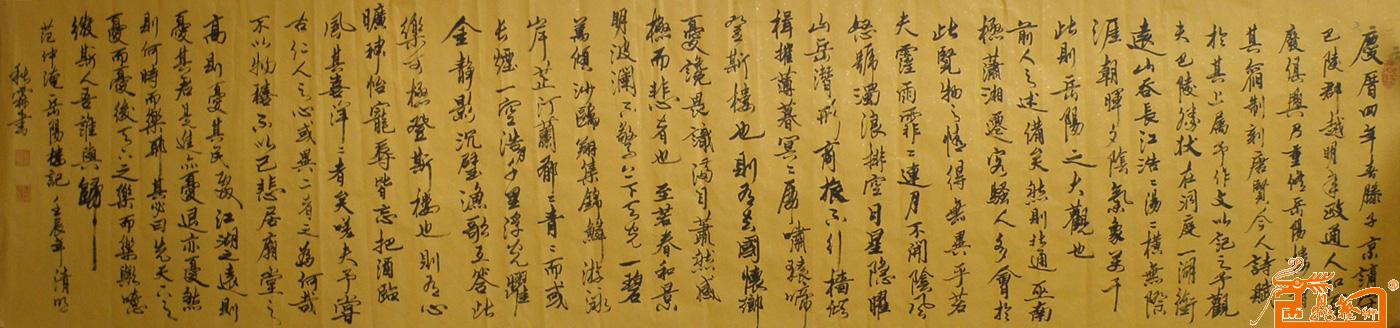 慶曆四年春滕子京謫守
巴陵郡越明年政通人和
廢俱興乃重修岳陽樓
其舊制刻唐賢今人詩賦
於其上屬予作文以記之予觀
夫巴陵勝狀在洞庭一湖銜
遠山吞長江浩々湯々橫無際
涯朝暉夕陰氣象萬千
此則岳陽之大觀也
前人之述備矣然則北通巫南
極瀟湘遷客騷人多會於
此覽物之情得無異乎若
夫霪雨霏々連月不開陰風
怒號濁浪排空日星隱曜
山岳潛形商旅不行檣傾
楫摧薄暮冥々虎嘯猿啼
登斯樓也則有去國懷鄉
憂讒畏譏滿目蕭然感
極而悲者也至若春和景
明波瀾不驚上下天光一碧
萬頃沙鷗翔集錦鱗游泳
岸芷汀蘭郁々青々而或
長煙一空浩千里浮光耀
金靜影沉璧漁歌互答此
樂可極登斯樓也則有心
曠神怡寵辱皆忘把酒臨
風其喜洋々者矣嗟夫予嘗
古仁人之心或異二者之為何哉
不以物禧不以己悲居廟堂之
高則憂其民處江湖之遠則
憂其君是進亦憂退亦憂然
則何時而樂耶其必曰先天下之
憂而憂後天下之樂而樂歟噫
微斯人吾誰與歸
范仲淹岳陽樓記 壬辰年清明
秋霖書